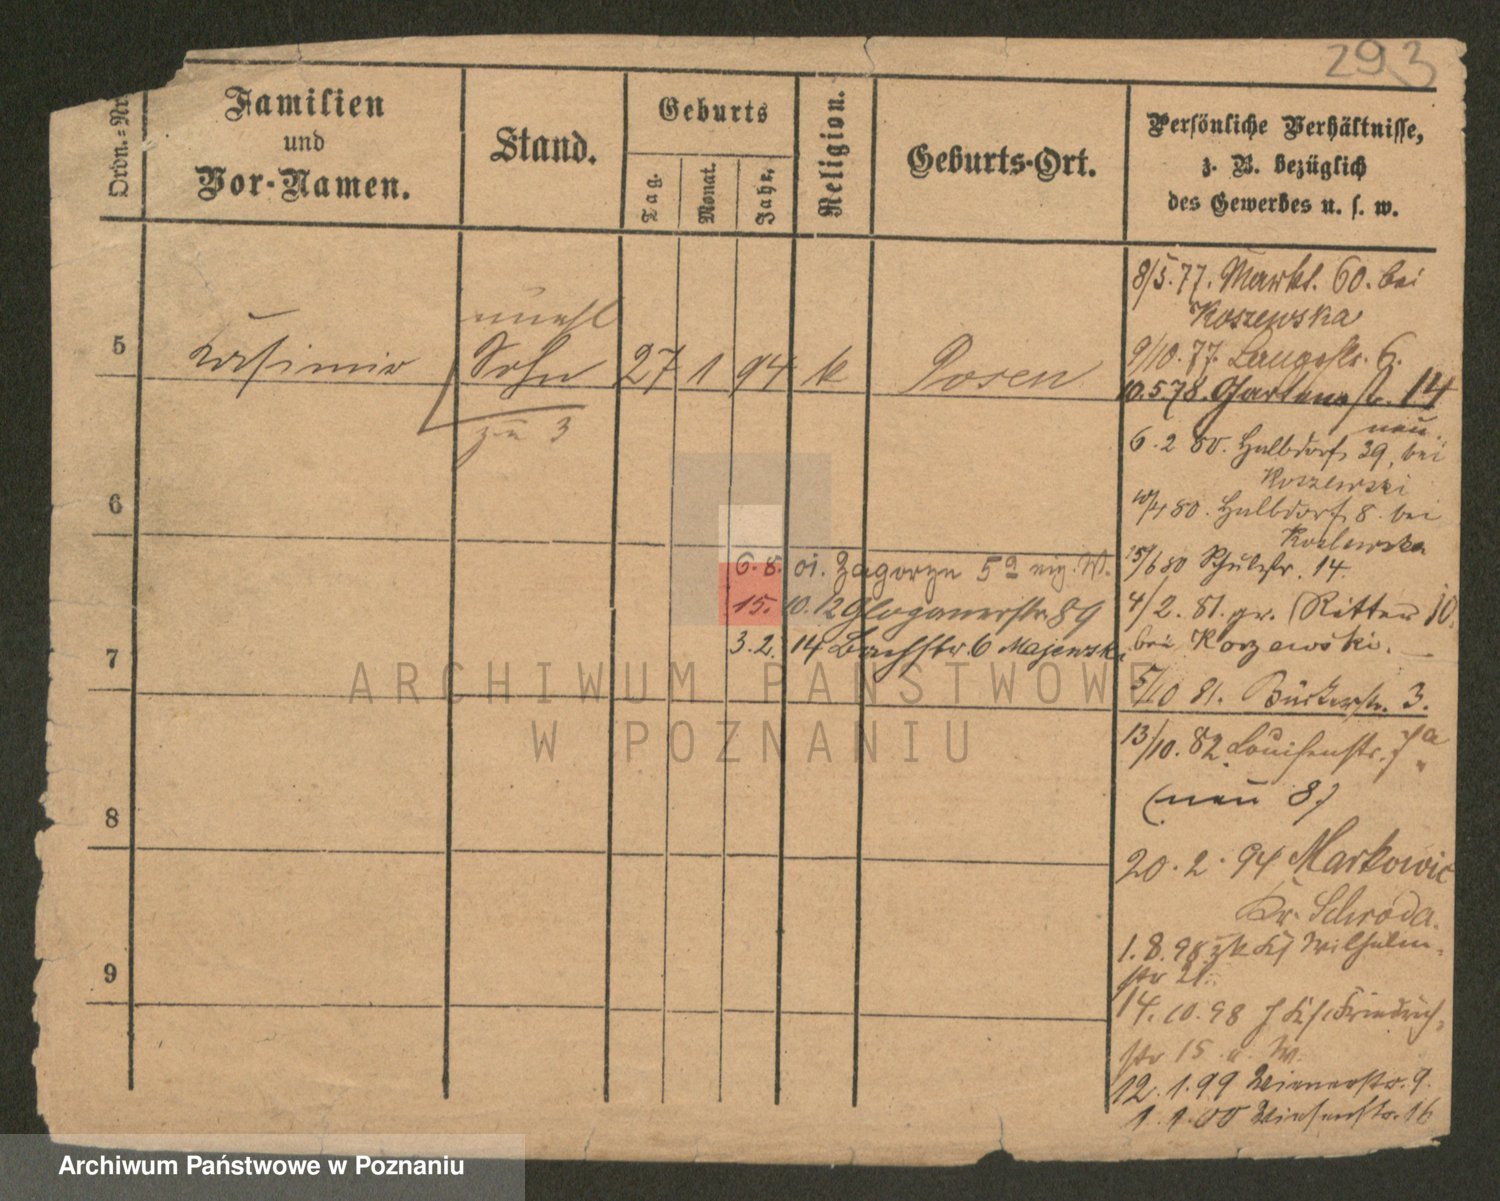 293
Ordn.=Nr.
Familien
und
Vor-Namen.
Stand.
Geburts
Tag.
Monat.
Jahr.
Religion.
Geburts-Ort.
Persönliche Verhältnisse,
z. B. bezüglich
des Gewerbes u. s. w.
5
Kasimir
unehl
Sohn
zu 3
27
1
94
k
Posen
6
7
8
9
8/5. 77. Markt. 60. bei
Koszewska
9/10. 77. Langestr. 6.
10. 5. 78. Gartenstr. 14
neu
6. 2 80. Halbdorfs 39, bei
Koszewski
10/4 80. Halbdorfs 8. bei
Koszewska
15/6 80 Schulstr. 14.
4/2. 81. gr. Ritter 10.
bei Koszewski.
5/10 81. Bäckerstr. 3.
13/10. 82 Louisenstr. 7a
(neu 8)
20. 2. 94 Markowic
Kr. Schroda.
1. 8. 98 Wilhelm-
str 21.
14. 10. 98 Friedrich-
str 15
12. 1. 99 Wienerstr. 9.
1. 1. 00 Wiesenstr. 16
6. 8. 01. Zagorze 5a W.
15. 10. 12 Glogauerstr. 89
3. 2. 14 Bachstr. 6 Majewski
ARCHIWUM PAŃSTWOWE
W POZNANIU
Archiwum Państwowe w Poznaniu